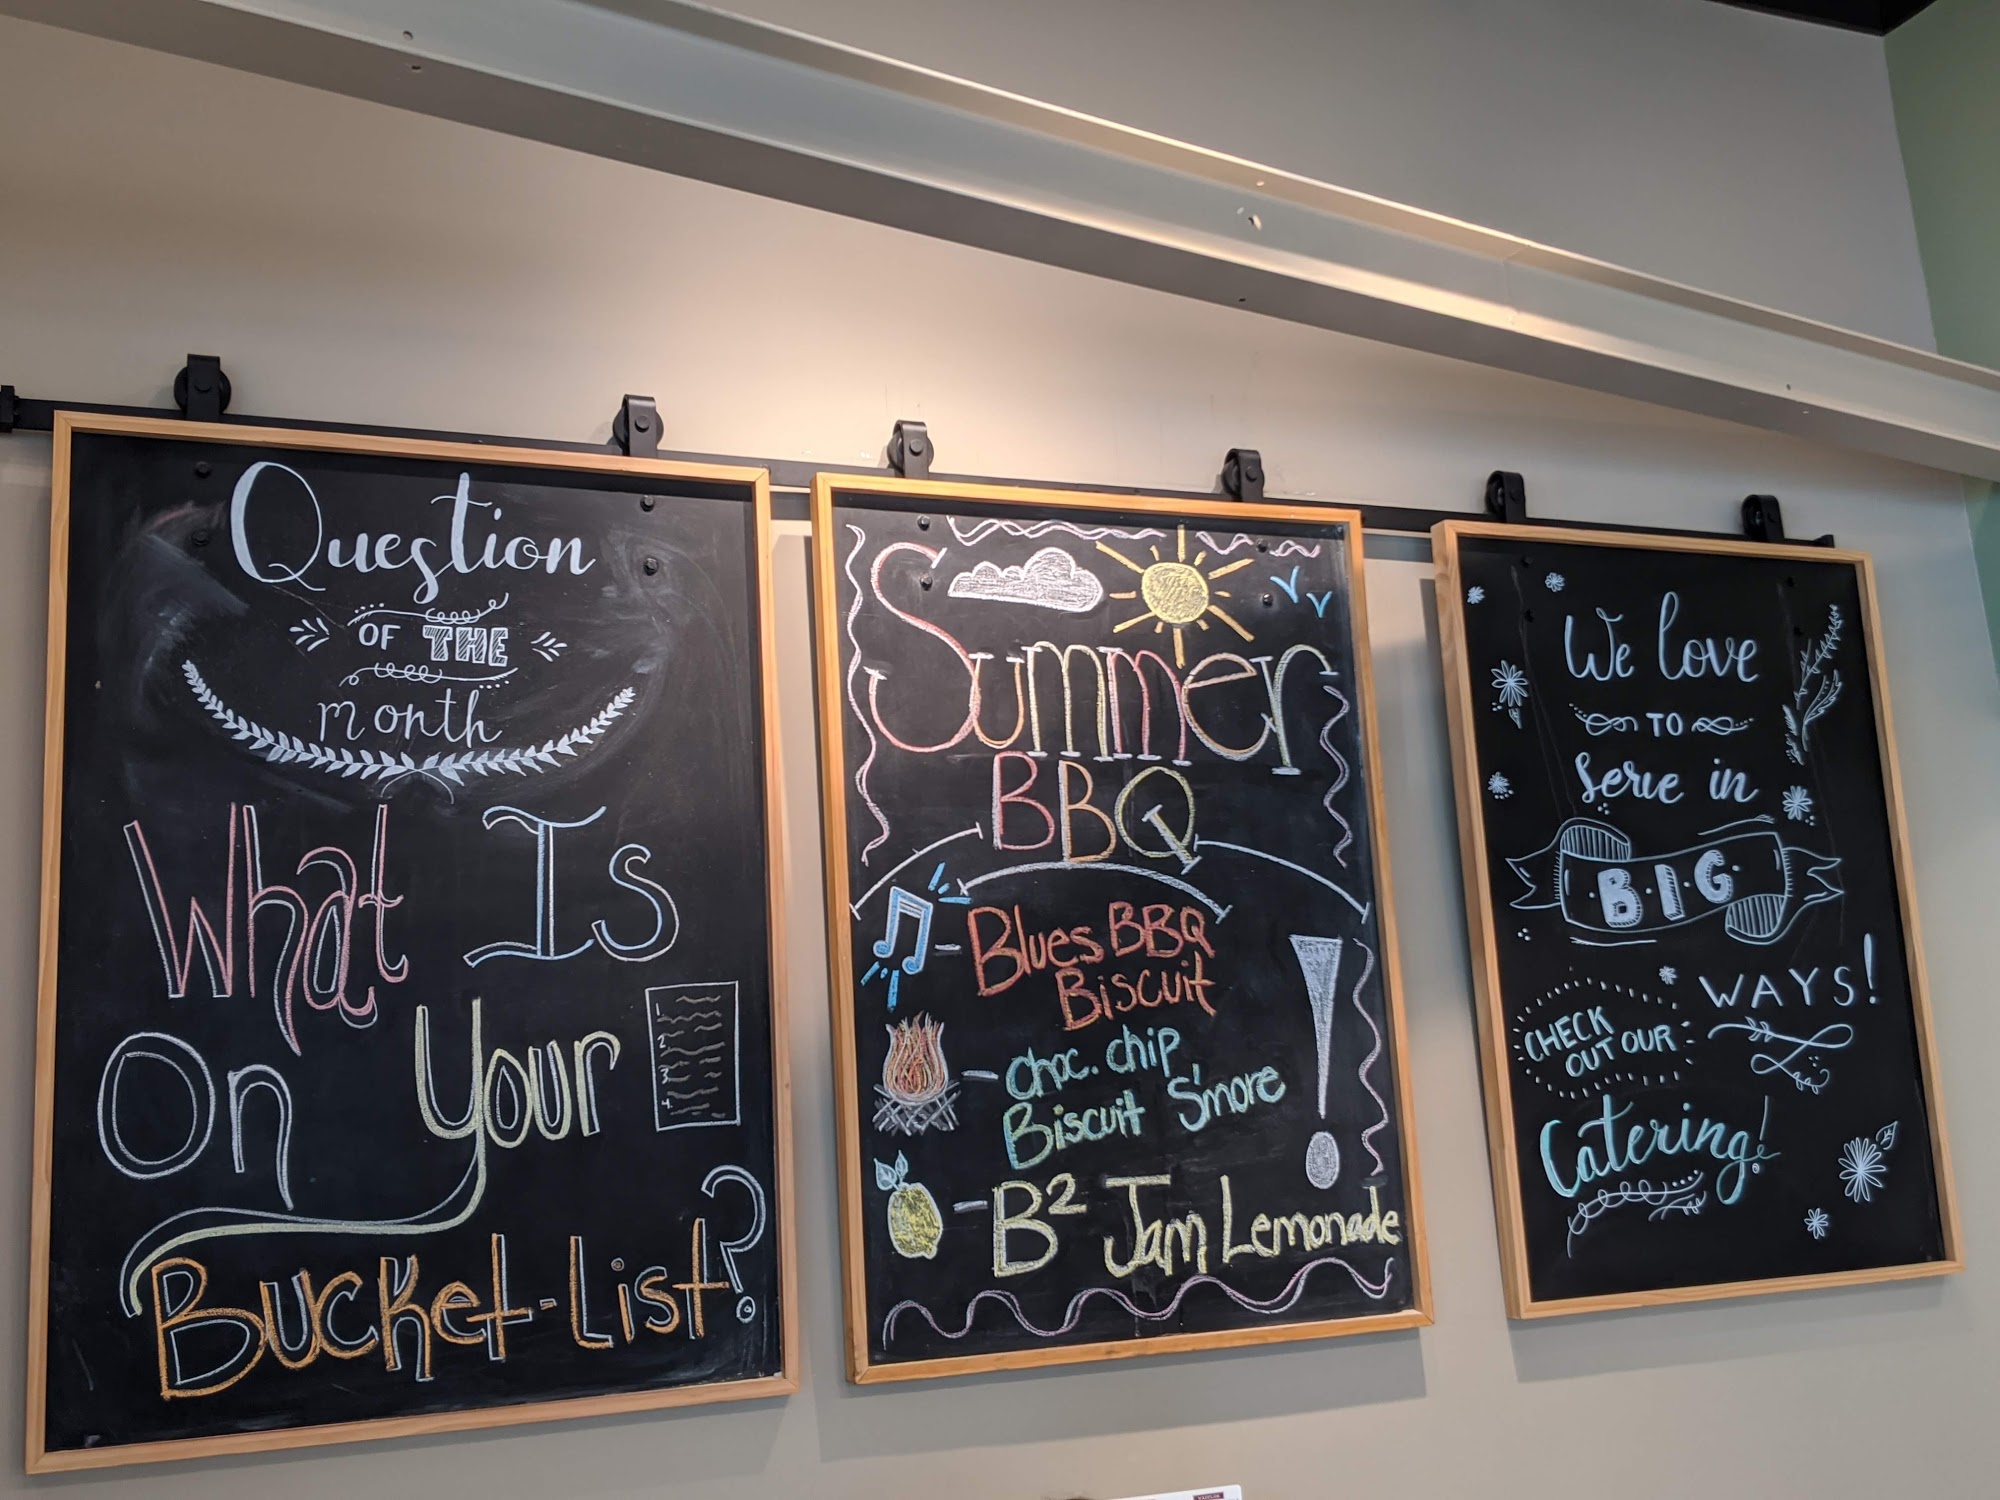 Question
OF THE
month
What Is
On Your
1.
2.
3.
4.
Bucket-List?
Summer
BBQ
Blues BBQ
Biscuit
choc. chip
Biscuit S'more
B² Jam Lemonade
!
We love
TO
serve in
B·I·G
WAYS!
CHECK
OUT OUR
Catering!